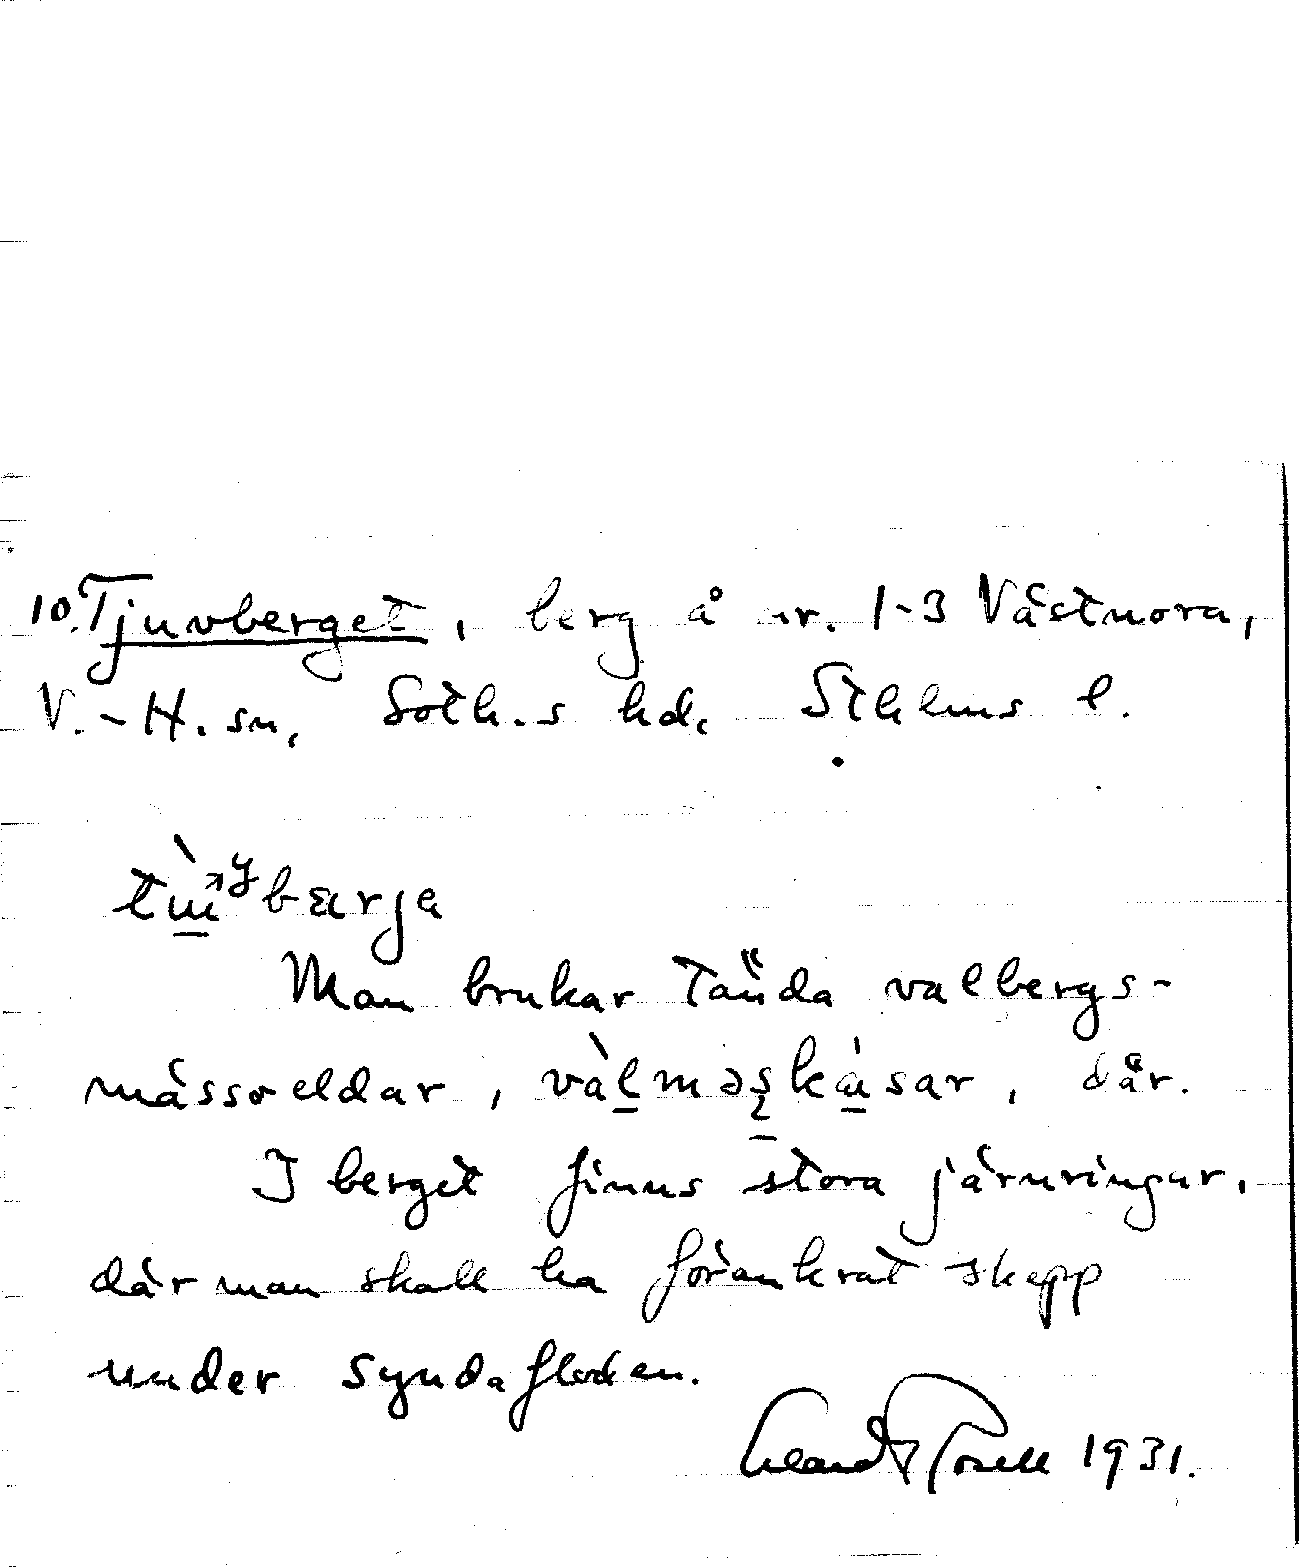 10. Tjuvberget, berg å nr. 1-3 Västnora,
V.-H. sn, Soth.s hd, Sthlms l.
Man brukar tända valbergs-
mässoeldar, där.
I berget finns stora järnringar,
där man skall ha förankrat skepp
under syndafloden.
1931.